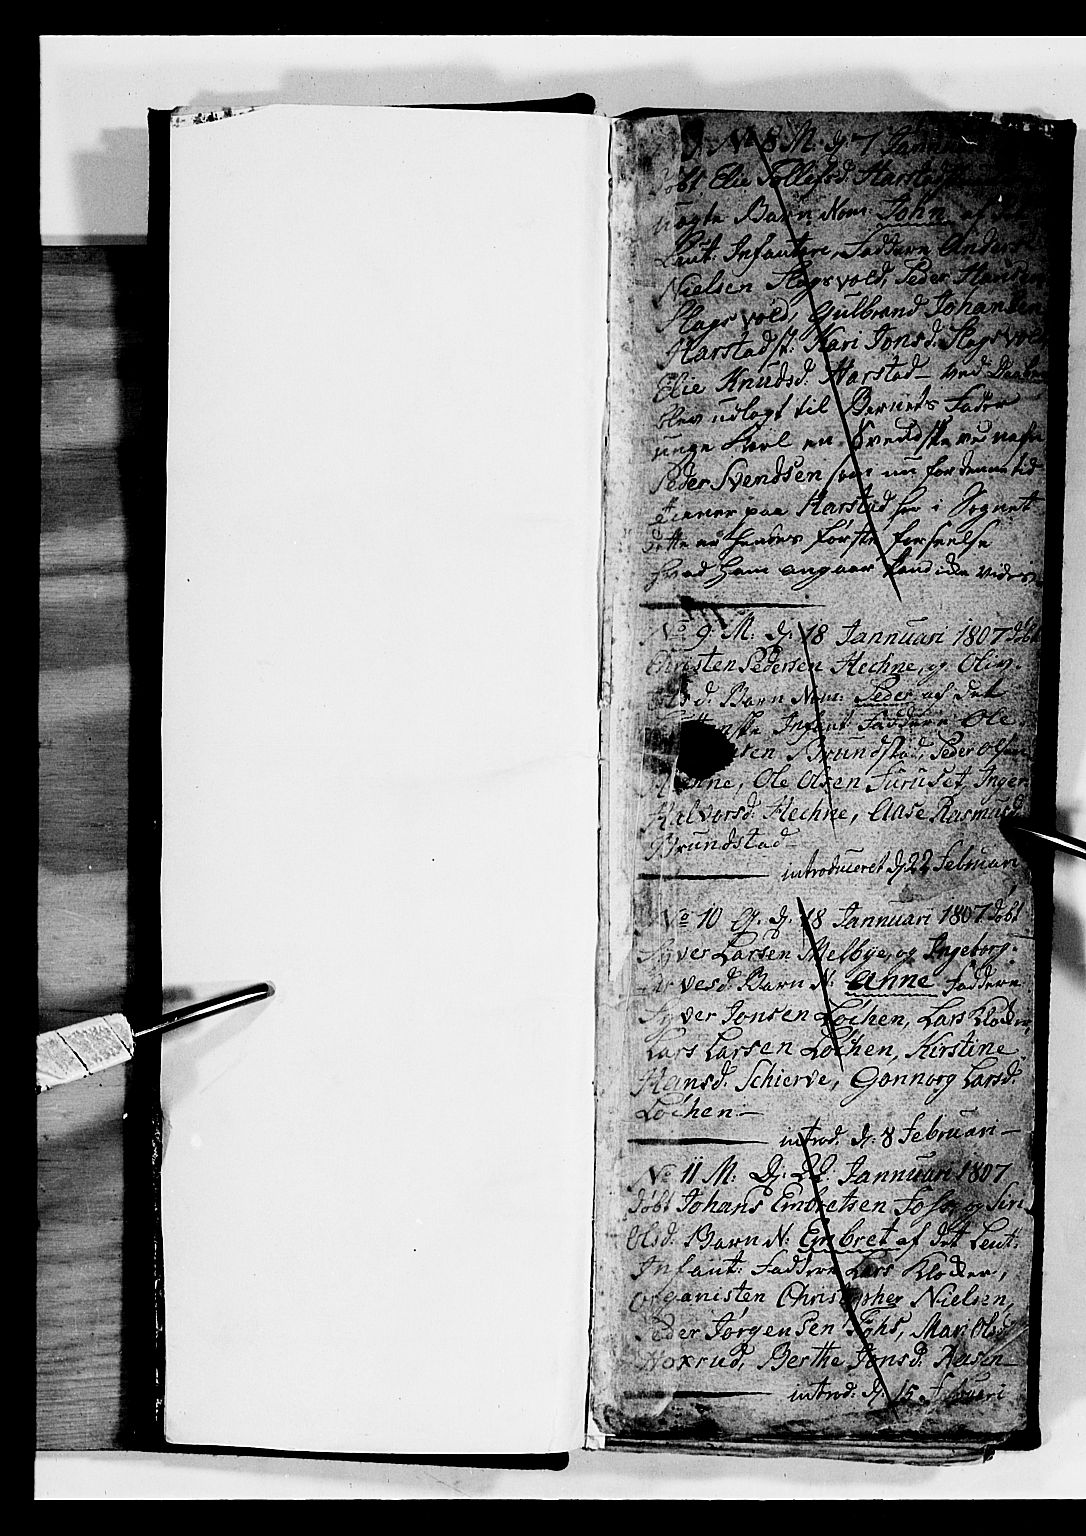 No 8 M. d. 7 Jannuari
døbt Elie Tollefsd. Harstad
uægte Barn Nom: John af det
Leut. Infanteri, Faddere Anders
Nielsen Slagsvold, Peder Hansen
Slagsvold, Gulbrand Johansen
Harstadst: Kari Jonsd. Slagsvold
Elie Knudsd. Harstad – ved Daaben
blev udlagt til Barnets Fader
unge Karl en Svendske ved nafn
Peder Svendsen som nu for denne tid
tiener paa Harstad her i Sognet
dette er hendes første forseelse
hvad ham angaar kand ikke vides
No 9. M. d. 18 Jannuari 1807 døbt
Christen Pedersen Hechne, og Oliv.
Olsd. Barn Nom: Peder af det
Infant. Faddere Ole
Brundstad, Peder Olsen
Hechne, Ole Olsen Furuset, Inger
Halvorsd. Hechne, Aase Rasmusd.
Brundstad –
introduceret d. 22 Februari
No 10 Q. d. 18 Jannuari 1807 døbt
Syver Larsen Melbye, og Ingeborg.
Barn N: Anne Faddere
Syver Jonsen Lochen, Lars Klocker,
Lars Larsen Lochen, Kirstine
Hansd. Schierve, Gonnorg Larsd.
Lochen –
introd. d. 8 Februari –
No 11 M. D. 22. Jannuari 1807
døbt Johans Embretsen Foss, og Siri
Olsd. Barn N: Embret af det Leut.
Infant: Faddere Lars Klocker,
Organisten Christopher Nielsen,
Peder Jørgensen Fohs, Mari Olsd.
Noxrud, Berthe Jonsd. Aasen –
introd. d. 15 Februari